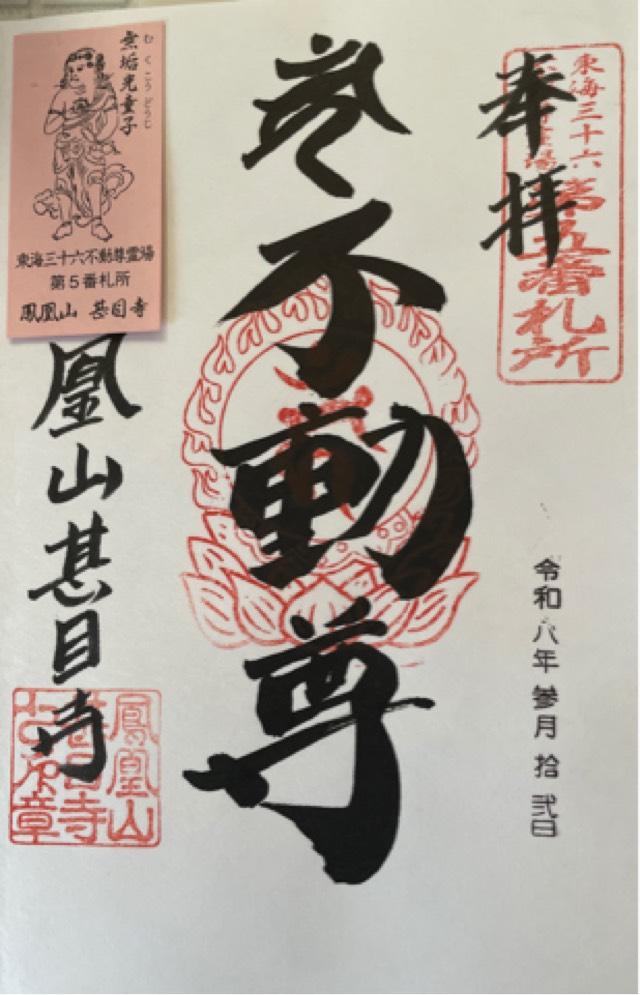 東海三十六
第五番札所
奉拝
令和八年 參月 拾 弐日
不動尊
むくこうどうじ
無垢光童子
東海三十六不動尊霊場
第5番札所
鳳凰山 甚目寺
凰山甚目寺
鳳凰山
甚目寺